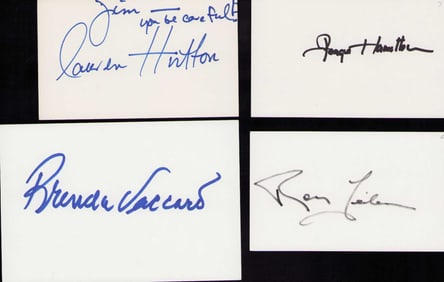 Jim
you be careful!
Lauren Hutton
George Hamilton
Brenda Vaccaro
Ron